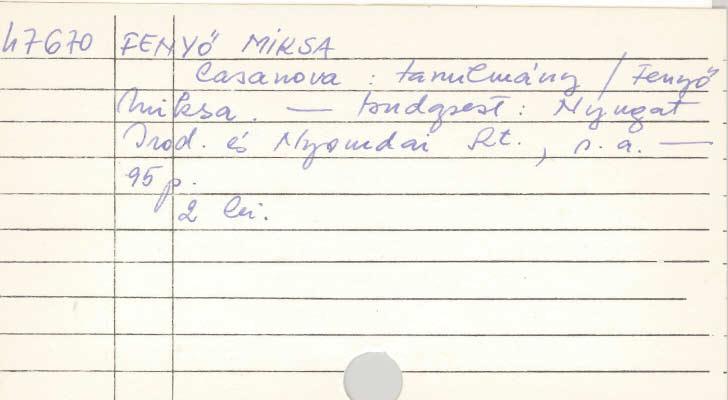 47670 FENYŐ MIKSA
Casanova : tanulmány / Fenyő
Miksa. — Budapest : Nyugat
Irod. és Nyomdai Rt., s. a. —
95 p.
2 lei.